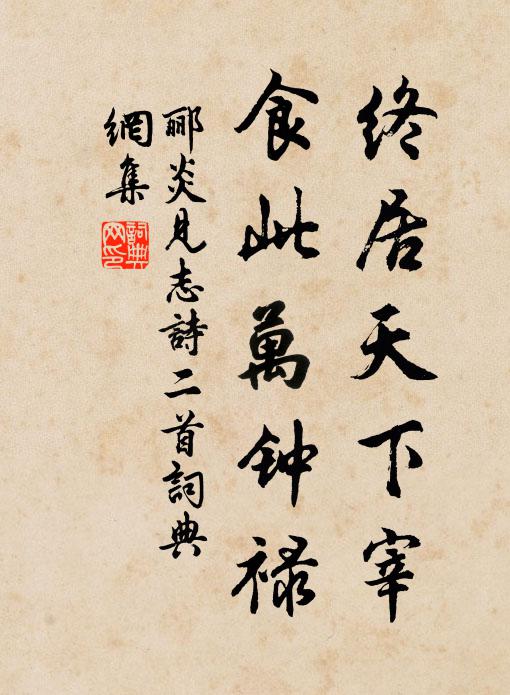 终居天下宰
食此萬钟禄
郦炎见志詩二首詞典
網集
詞典
网印